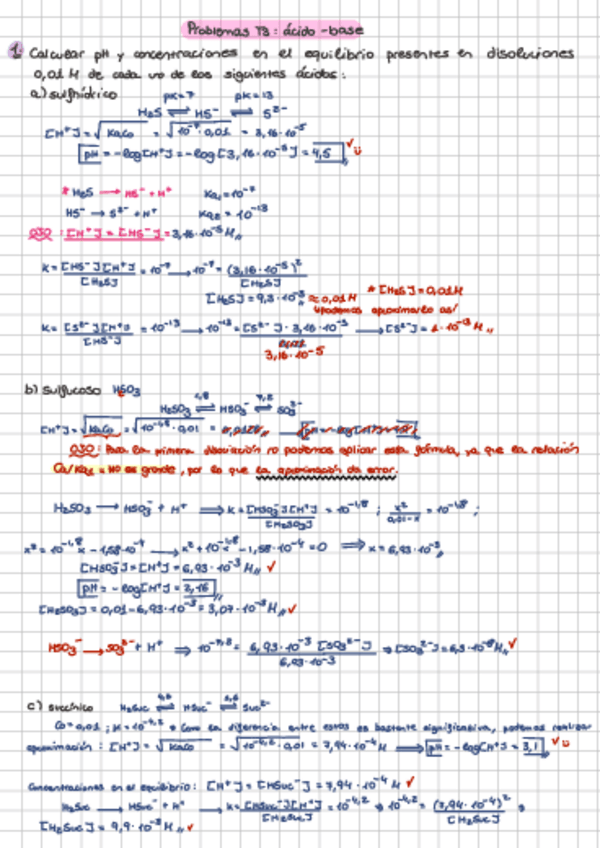 Problemas T3: ácido-base
1. Calcular pH y concentraciones en el equilibrio presentes en disoluciones
0,01 M de cada uno de los siguientes ácidos:
a) sulfhídrico
pK=7 pK=13
H₂S ⇌ HS⁻ ⇌ S²⁻
[H⁺] = √KaCo = √10⁻⁷·0,01 = 3,16·10⁻⁵
pH = -log[H⁺] = -log[3,16·10⁻⁵] = 4,5 ✓
* H₂S → HS⁻ + H⁺ Ka₁=10⁻⁷
HS⁻ → S²⁻ + H⁺ Ka₂=10⁻¹³
OJO: [H⁺] = [HS⁻] = 3,16·10⁻⁵ M
K = [HS⁻][H⁺] / [H₂S] = 10⁻⁷ → 10⁻⁷ = (3,16·10⁻⁵)² / [H₂S]
* [H₂S] = 0,01M
≈ 0,01M
podemos aproximarlo así
K = [S²⁻][H⁺] / [HS⁻] = 10⁻¹³ → 10⁻¹³ = [S²⁻]·3,16·10⁻⁵ → [S²⁻] = 1·10⁻¹³ M
3,16·10⁻⁵
b) sulfuroso H₂SO₃
1,8 7,2
H₂SO₃ ⇌ HSO₃⁻ ⇌ SO₃²⁻
[H⁺] = √KaCo = √10⁻¹·⁸·0,01
OJO: Para la primera disociación no podemos aplicar esta fórmula, ya que la relación
Co/Ka₁ = NO es grande, por lo que la aproximación da error.
H₂SO₃ → HSO₃⁻ + H⁺ ⇒ K = [HSO₃⁻][H⁺] / [H₂SO₃] = 10⁻¹·⁸ ; x² / 0,01-x = 10⁻¹·⁸ ;
→ x² + 10⁻¹·⁸x - 1,58·10⁻⁴ = 0 ⇒ x = 6,93·10⁻³
[HSO₃⁻] = [H⁺] = 6,93·10⁻³ M ✓
pH = -log[H⁺] = 2,16
[H₂SO₃] = 0,01 - 6,93·10⁻³ = 3,07·10⁻³ M ✓
HSO₃⁻ → SO₃²⁻ + H⁺ ⇒ = 6,93·10⁻³ [SO₃²⁻] / 6,93·10⁻³ ⇒ [SO₃²⁻] = 6,3·10⁻⁸ M ✓
c) succínico
H₂Suc ⇌ HSuc⁻ ⇌ Suc²⁻
Co = 0,01 ; K = 10⁻⁴·² * Como la diferencia entre estas es bastante significativa, podemos realizar
aproximación: [H⁺] = √KaCo = √10⁻⁴·²·0,01 = 7,94·10⁻⁴ M → pH = -log[H⁺] = 3,1 ✓
Concentraciones en el equilibrio: [H⁺] = [HSuc⁻] = 7,94·10⁻⁴ M ✓
H₂Suc → HSuc⁻ + H⁺ → K = [HSuc⁻][H⁺] / [H₂Suc] = 10⁻⁴·² → 10⁻⁴·² = (7,94·10⁻⁴)² / [H₂Suc]
[H₂Suc] = 9,9·10⁻³ M ✓